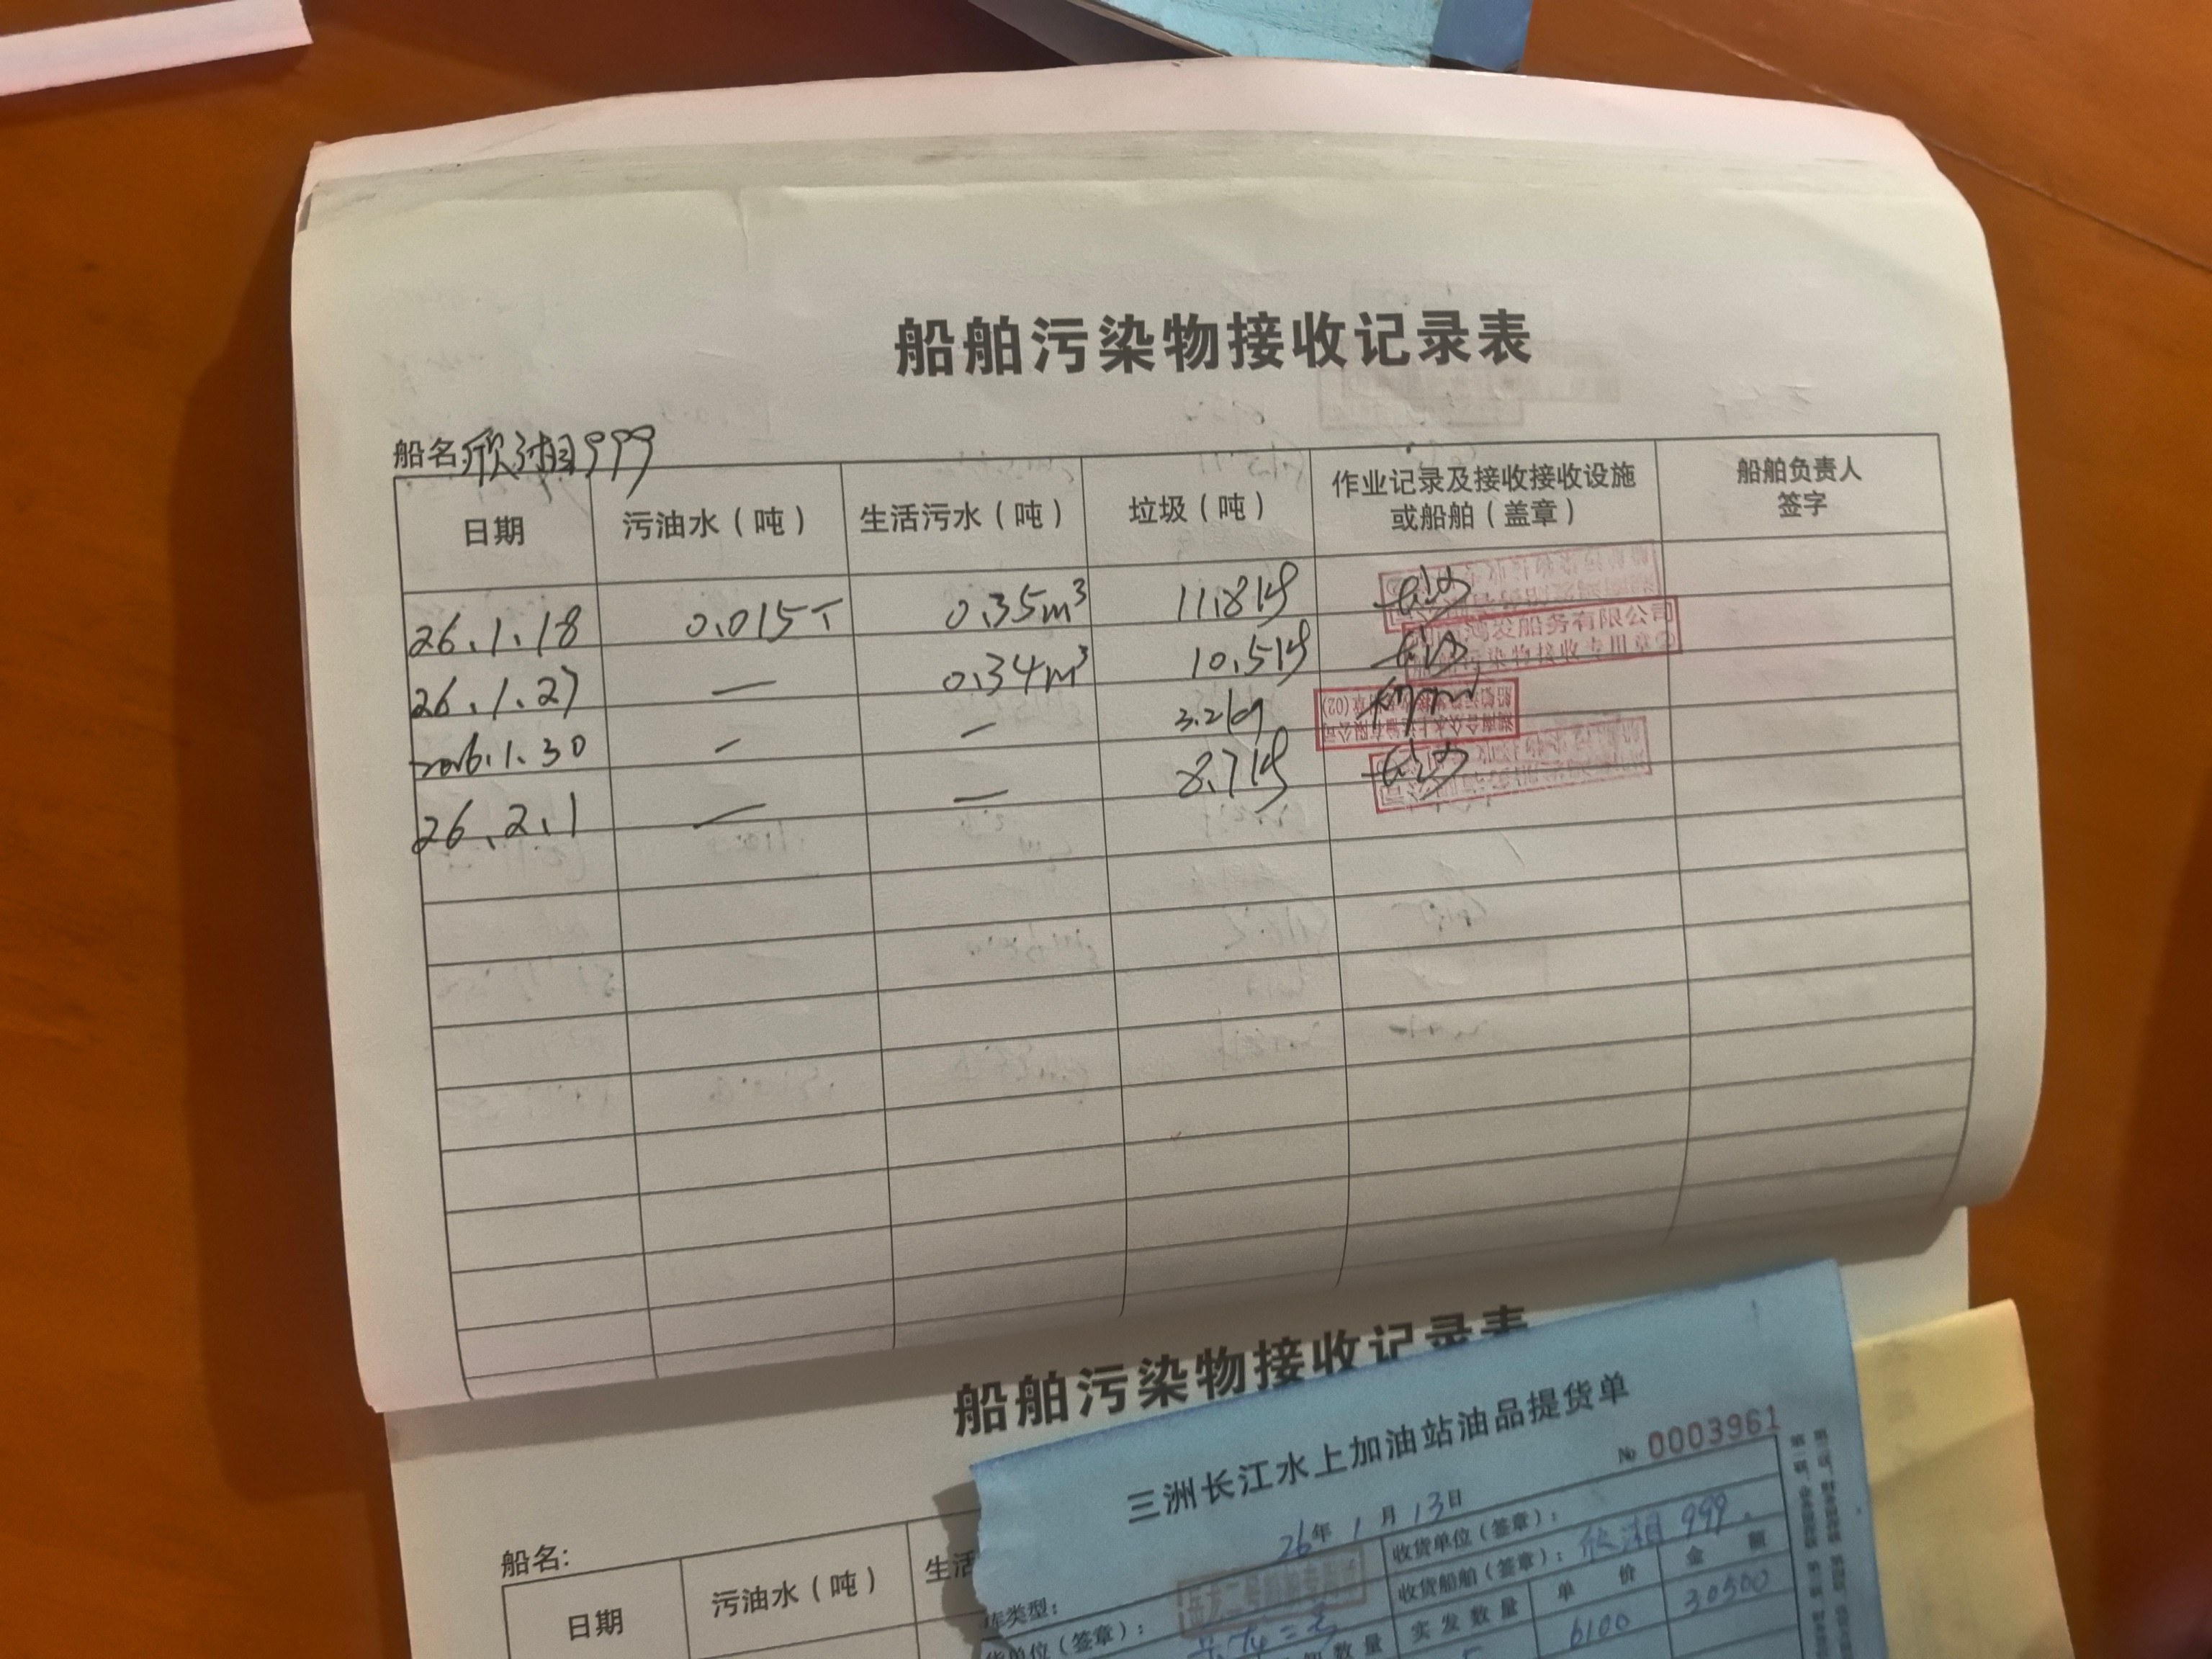 船舶污染物接收记录表
船名 欣湘999
日期 污油水（吨） 生活污水（吨） 垃圾（吨） 作业记录及接收接收设施或船舶（盖章） 船舶负责人签字
26.1.18 0.015T 0.35m³ 11.8kg
鸿发船务有限公司
污染物接收专用章
26.1.27 — 0.34m³ 10.5kg
2026.1.30 — — 3.2kg
26.2.1 — — 8.7kg
船舶污染物接收记录表
船名:
日期 污油水（吨） 生活
三洲长江水上加油站油品提货单
№ 0003961
26年 1月 13日
收货单位（签章）:
收货船舶（签章）: 欣湘 999.
库类型:
货单位（签章）:
数量 实发数量 单价 金额
6100 30500